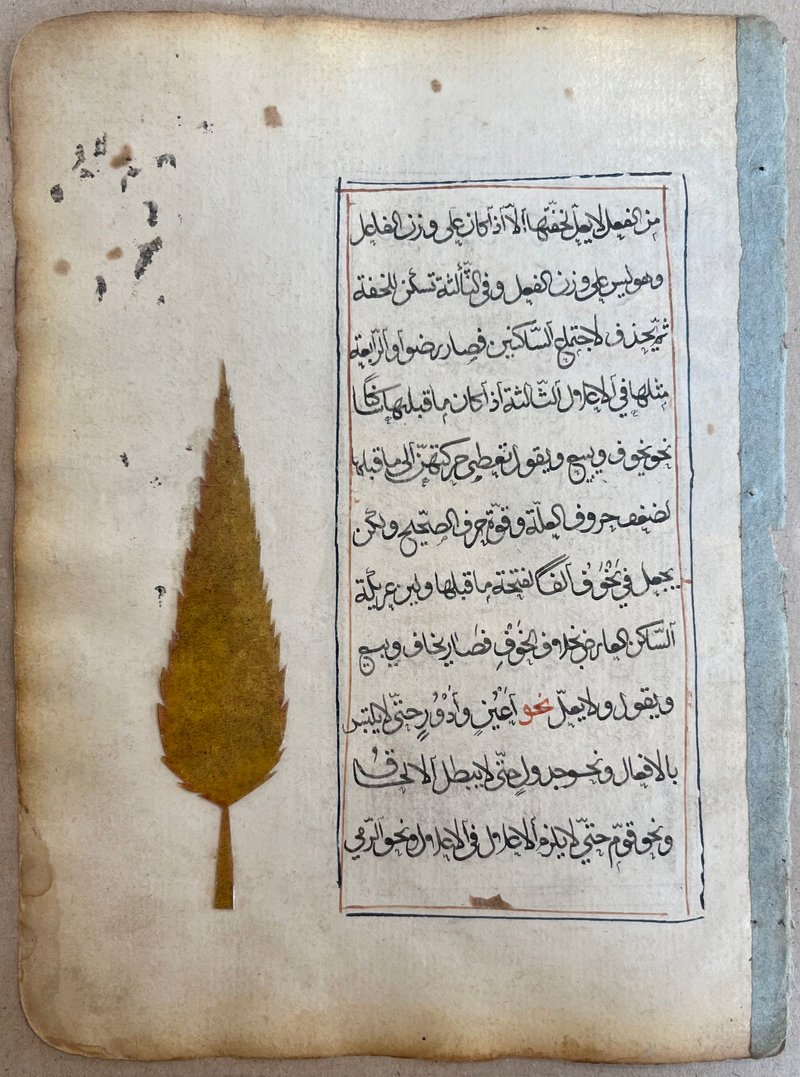 من الفعل لا يعل لخفتها الا اذا كان على وزن الفاعل
وهو ليس على وزن الفعل وفي الثالثة تسكن للخفة
ثم يحذف لاجتماع الساكنين فصار رضوا والرابعة
مثلها في الاعلال الثالثة اذا كان ما قبلها ساكنا
نحو يخوف ويبيع ويقول تعطى حركتهن الى ما قبلها
لضعف حروف العلة وقوة حرف الصحيح ولكن
يجعل في يَخْوَفُ الفا لفتحة ما قبلها ولين عريكة
الساكن العارض بخلاف الخَوْفِ فصار يخاف ويبيع
ويقول ولا يعلّ نحو اَعْيُنٍ وأَدْوُرٍ حتى لا يلتبس
بالافعال ونحو جدول حتى لا يبطل الالحاق
ونحو قوّم حتى لا يلزم الاعلال في الاعلال ونحو الرمي